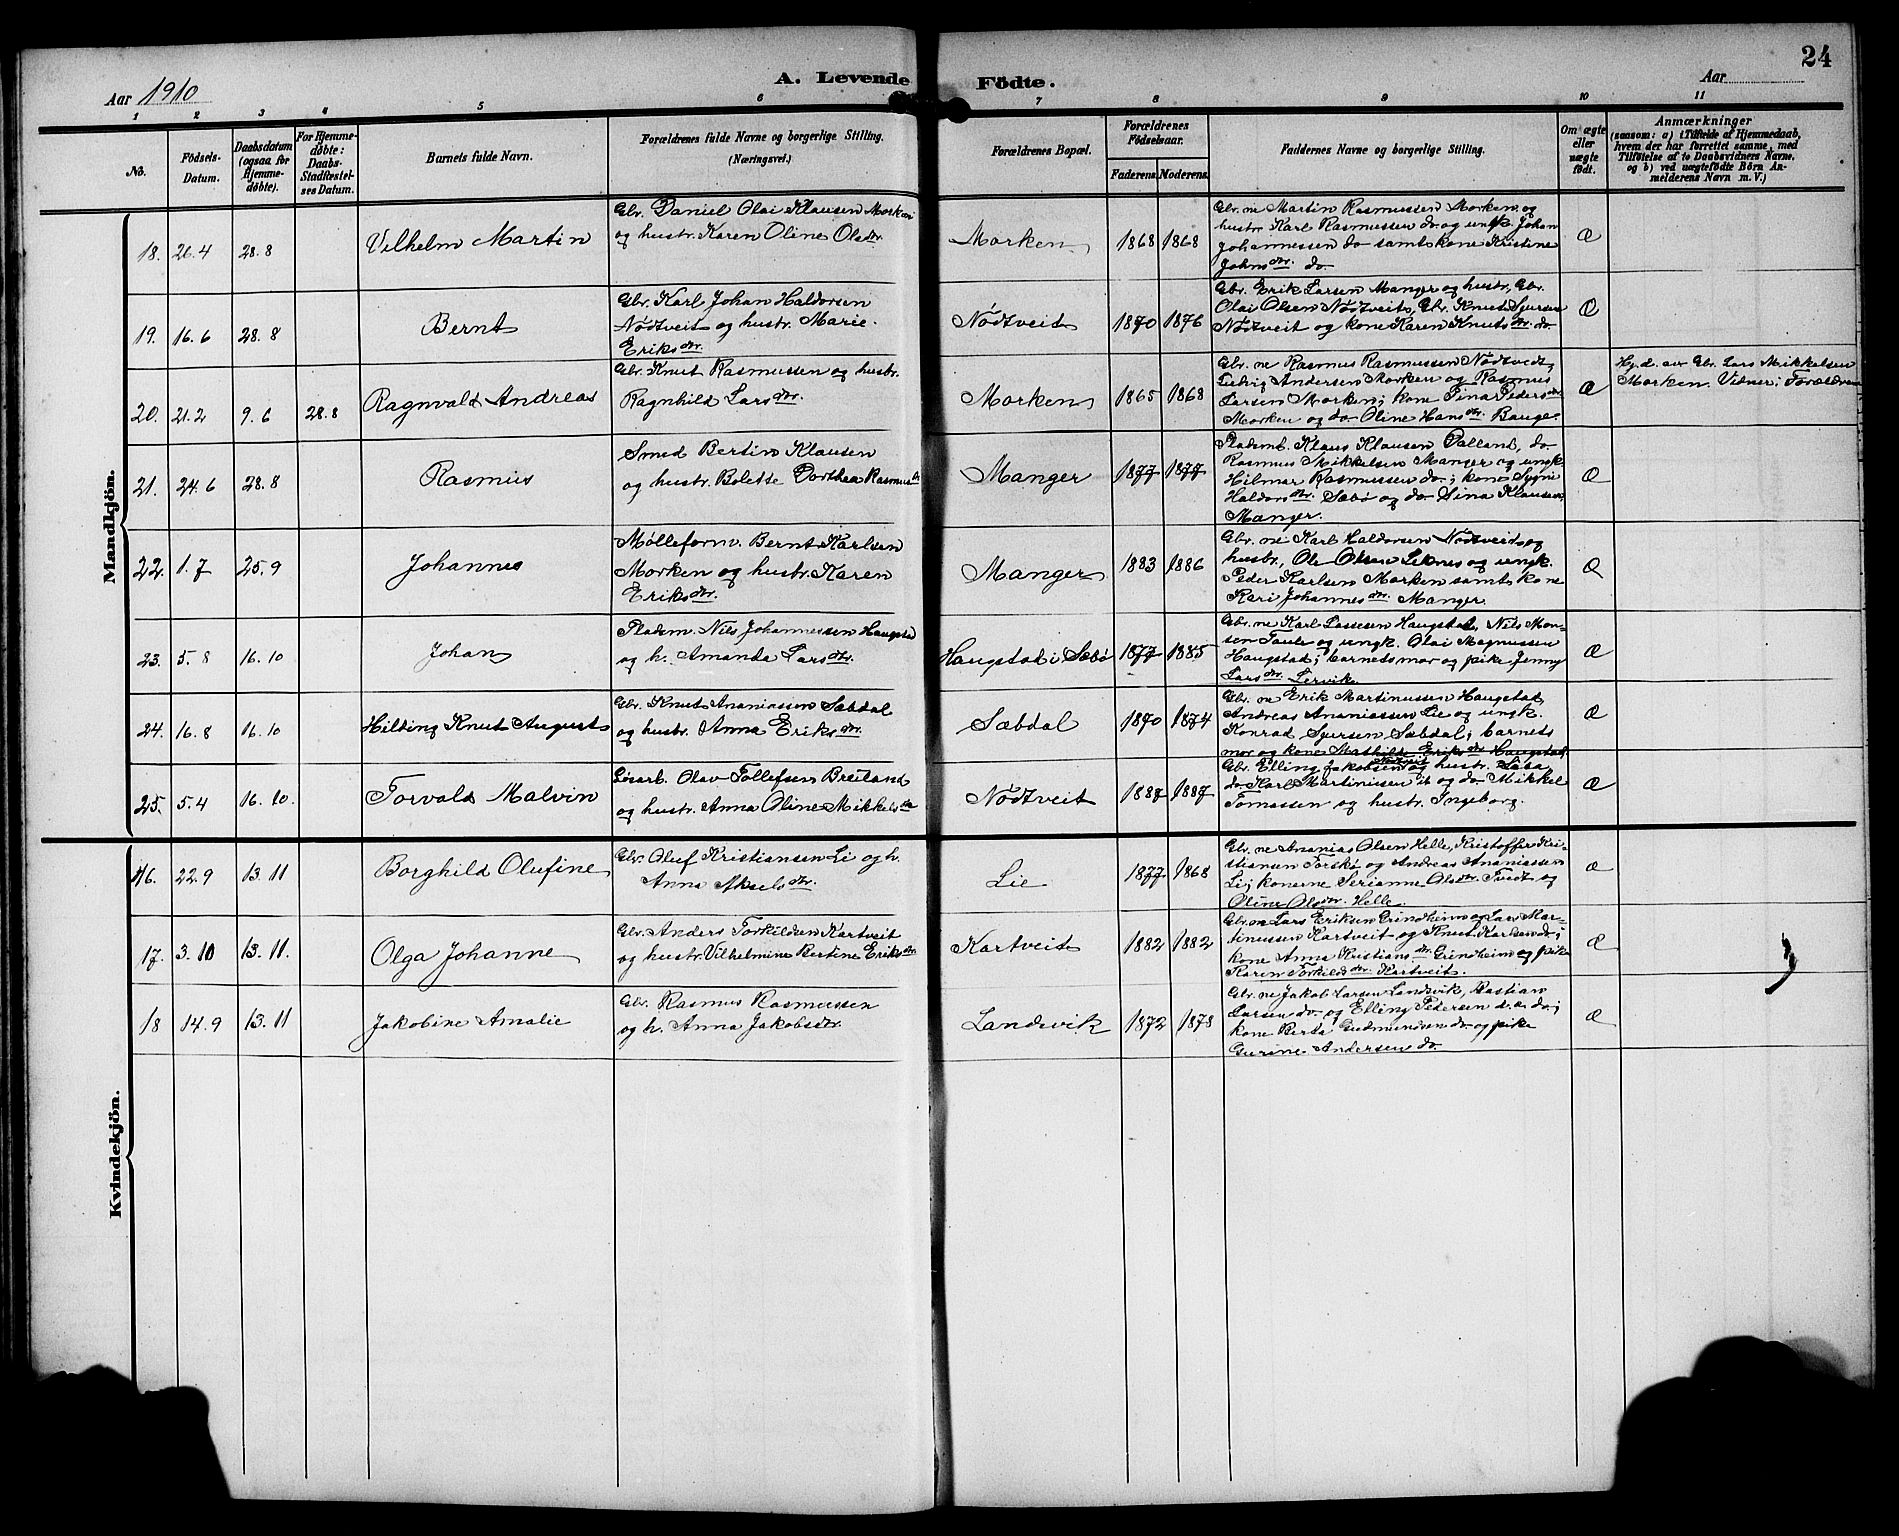 24
A. Levende Födte.
Aar 1910
Aar
1 2 3 4 5 6 7 8 9 10 11
No.
Födsels-
Datum.
Daabsdatum
(ogsaa for
Hjemme-
döbte).
For Hjemme-
döbte:
Daabs-
Stadfæstel-
ses Datum.
Barnets fulde Navn.
Forældrenes fulde Navne og borgerlige Stilling.
(Næringsvei.)
Forældrenes Bopæl.
Forældrenes
Födselsaar.
Faderens. Moderens.
Faddernes Navne og borgerlige Stilling.
Om ægte
eller
uægte
født.
Anmærkninger
(saasom: a) i Tilfælde af Hjemmedaab,
hvem der har forrettet samme, med
Tilföielse af to Daabsvidners Navne,
og b) ved uægtefödte Börn An-
melderens Navn m. V.)
Mandkjön.
18. 26.4 28.8
Vilhelm Martin
Gbr. Daniel Olai Klausen Morken
og hustr. Karen Oline Olsdtr.
Morken 1868 1868
Gbr.ne Martin Rasmussen Morken og
hustr. Karl Rasmussen do. og ungk. Johan
Johannessen do samt kone Kristine
Johnsdtr. do.
Æ
19. 16.6 28.8
Bernt
Gbr. Karl Johan Haldorsen
Nödtveit og hustr. Marie
Eriksdtr.
Nödtveit 1870 1876
Gbr. Erik Larsen Manger og hustr., Gbr.
Olai Olsen Nödtveit, Gbr. Knut Sjursen
Nödtveit og kone Karen Knutsdtr. do
Æ
20. 21.2 9.6 28.8
Ragnvald Andreas
Gbr. Knut Rasmussen og hustr.
Ragnhild Larsdtr.
Morken 1865 1868
Gbr.ne Rasmus Rasmussen Nödtvedt,
Ludvig Andersen Morken og Rasmus
Larsen Morken; kone Tina Pedersdtr.
Morken og do. Oline Hansdtr. Bauge.
Æ
Hj.d. av Gbr. Lars Mikkelsen
Morken. Vidner: Forældrene
21. 24.6 28.8
Rasmus
Smed Bertin Klausen
og hustr. Bolette Dorthea Rasmusdtr.
Manger 1877 1877
Pladsmd. Klaus Klausen Dalland, do
Rasmus Mikkelsen Manger og ungk.
Hilmar Rasmussen do; kone Sygni
Haldorsdtr. Sæbö og do Sina Klausen,
Manger.
Æ
22. 1.7 25.9
Johannes
Mölleform. Bernt Karlsen
Morken og hustr. Karen
Eriksdtr.
Manger 1883 1886
Gbr.ne Karl Haldorsen Nödtveit og
hustr., Ole Olsen Leknes og ungk.
Peder Karlsen Morken samt kone
Kari Johannesdtr. Manger.
Æ
23. 5.8 16.10
Johan
Pladsm. Nils Johannessen Haugstad
og h. Amanda Larsdtr.
Haugstad i Sæbö 1877 1885
Gbr.ne Karl Lassesen Haugstad, Nils Mon-
sen Taule og ungk. Olai Magnussen
Haugstad; barnets mor og pike Jenny
Larsdtr. Lervik.
Æ
24. 16.8 16.10
Hilding Knut August
Gbr. Knut Ananiassen Sæbdal
og hustr. Anna Eriksdtr.
Sæbdal 1870 1874
Gbr.ne Erik Martinussen Haugstad,
Andreas Ananiassen Lie og ungk.
Konrad Sjursen Sæbdal; barnets
mor og kone Mathilde Eriksdtr. Haugstad
Æ
25. 5.4 16.10.
Torvald Malvin
Lösarb. Olav Tollefsen Breiland
og hustr. Anna Oline Mikkelsdtr
Nödtveit 1887 1887
Gbr. Elling Jakobsen Nödtveit og hustr. Lasa,
do Karl Martinussen ib og do Mikkel
Tomassen og hustr. Ingeborg.
Æ
Kvindekjön.
16. 22.9 13.11
Borghild Olufine
Gbr. Oluf Kristiansen Li og h.
Anna Akselsdtr.
Lie 1877 1868
Gbr.ne Ananias Olsen Helle, Kristoffer Kri-
stiansen Toskö og Andreas Ananiassen
Li; konerne Serianne Olsdtr. Tvedt og
Oline Olsdtr. Helle.
Æ
17. 3.10 13.11.
Olga Johanne
Gbr. Anders Torkildsen Kartveit
og hustr. Vilhelmine Bertine Eriksdtr.
Kartveit 1882 1882
Gbr.ne Lars Eriksen Grindheim og Lars Mar-
tinussen Kartveit og Knut Karlsen do.;
kone Anna Kristiansdtr. Grindheim og pike
Karen Torkildsdtr. Kartveit.
Æ
18 14.9 13.11
Jakobine Amalie
Gbr. Rasmus Rasmussen
og h. Anna Jakobsdtr.
Landsvik 1872 1878
Gbr.ne Jakob Larsen Landsvik, Bastian
Larsen do. og Elling Pedersen s.æ. do.;
kone Berta Gudmundsen do. og pike
Gurine Andersen do.
Æ